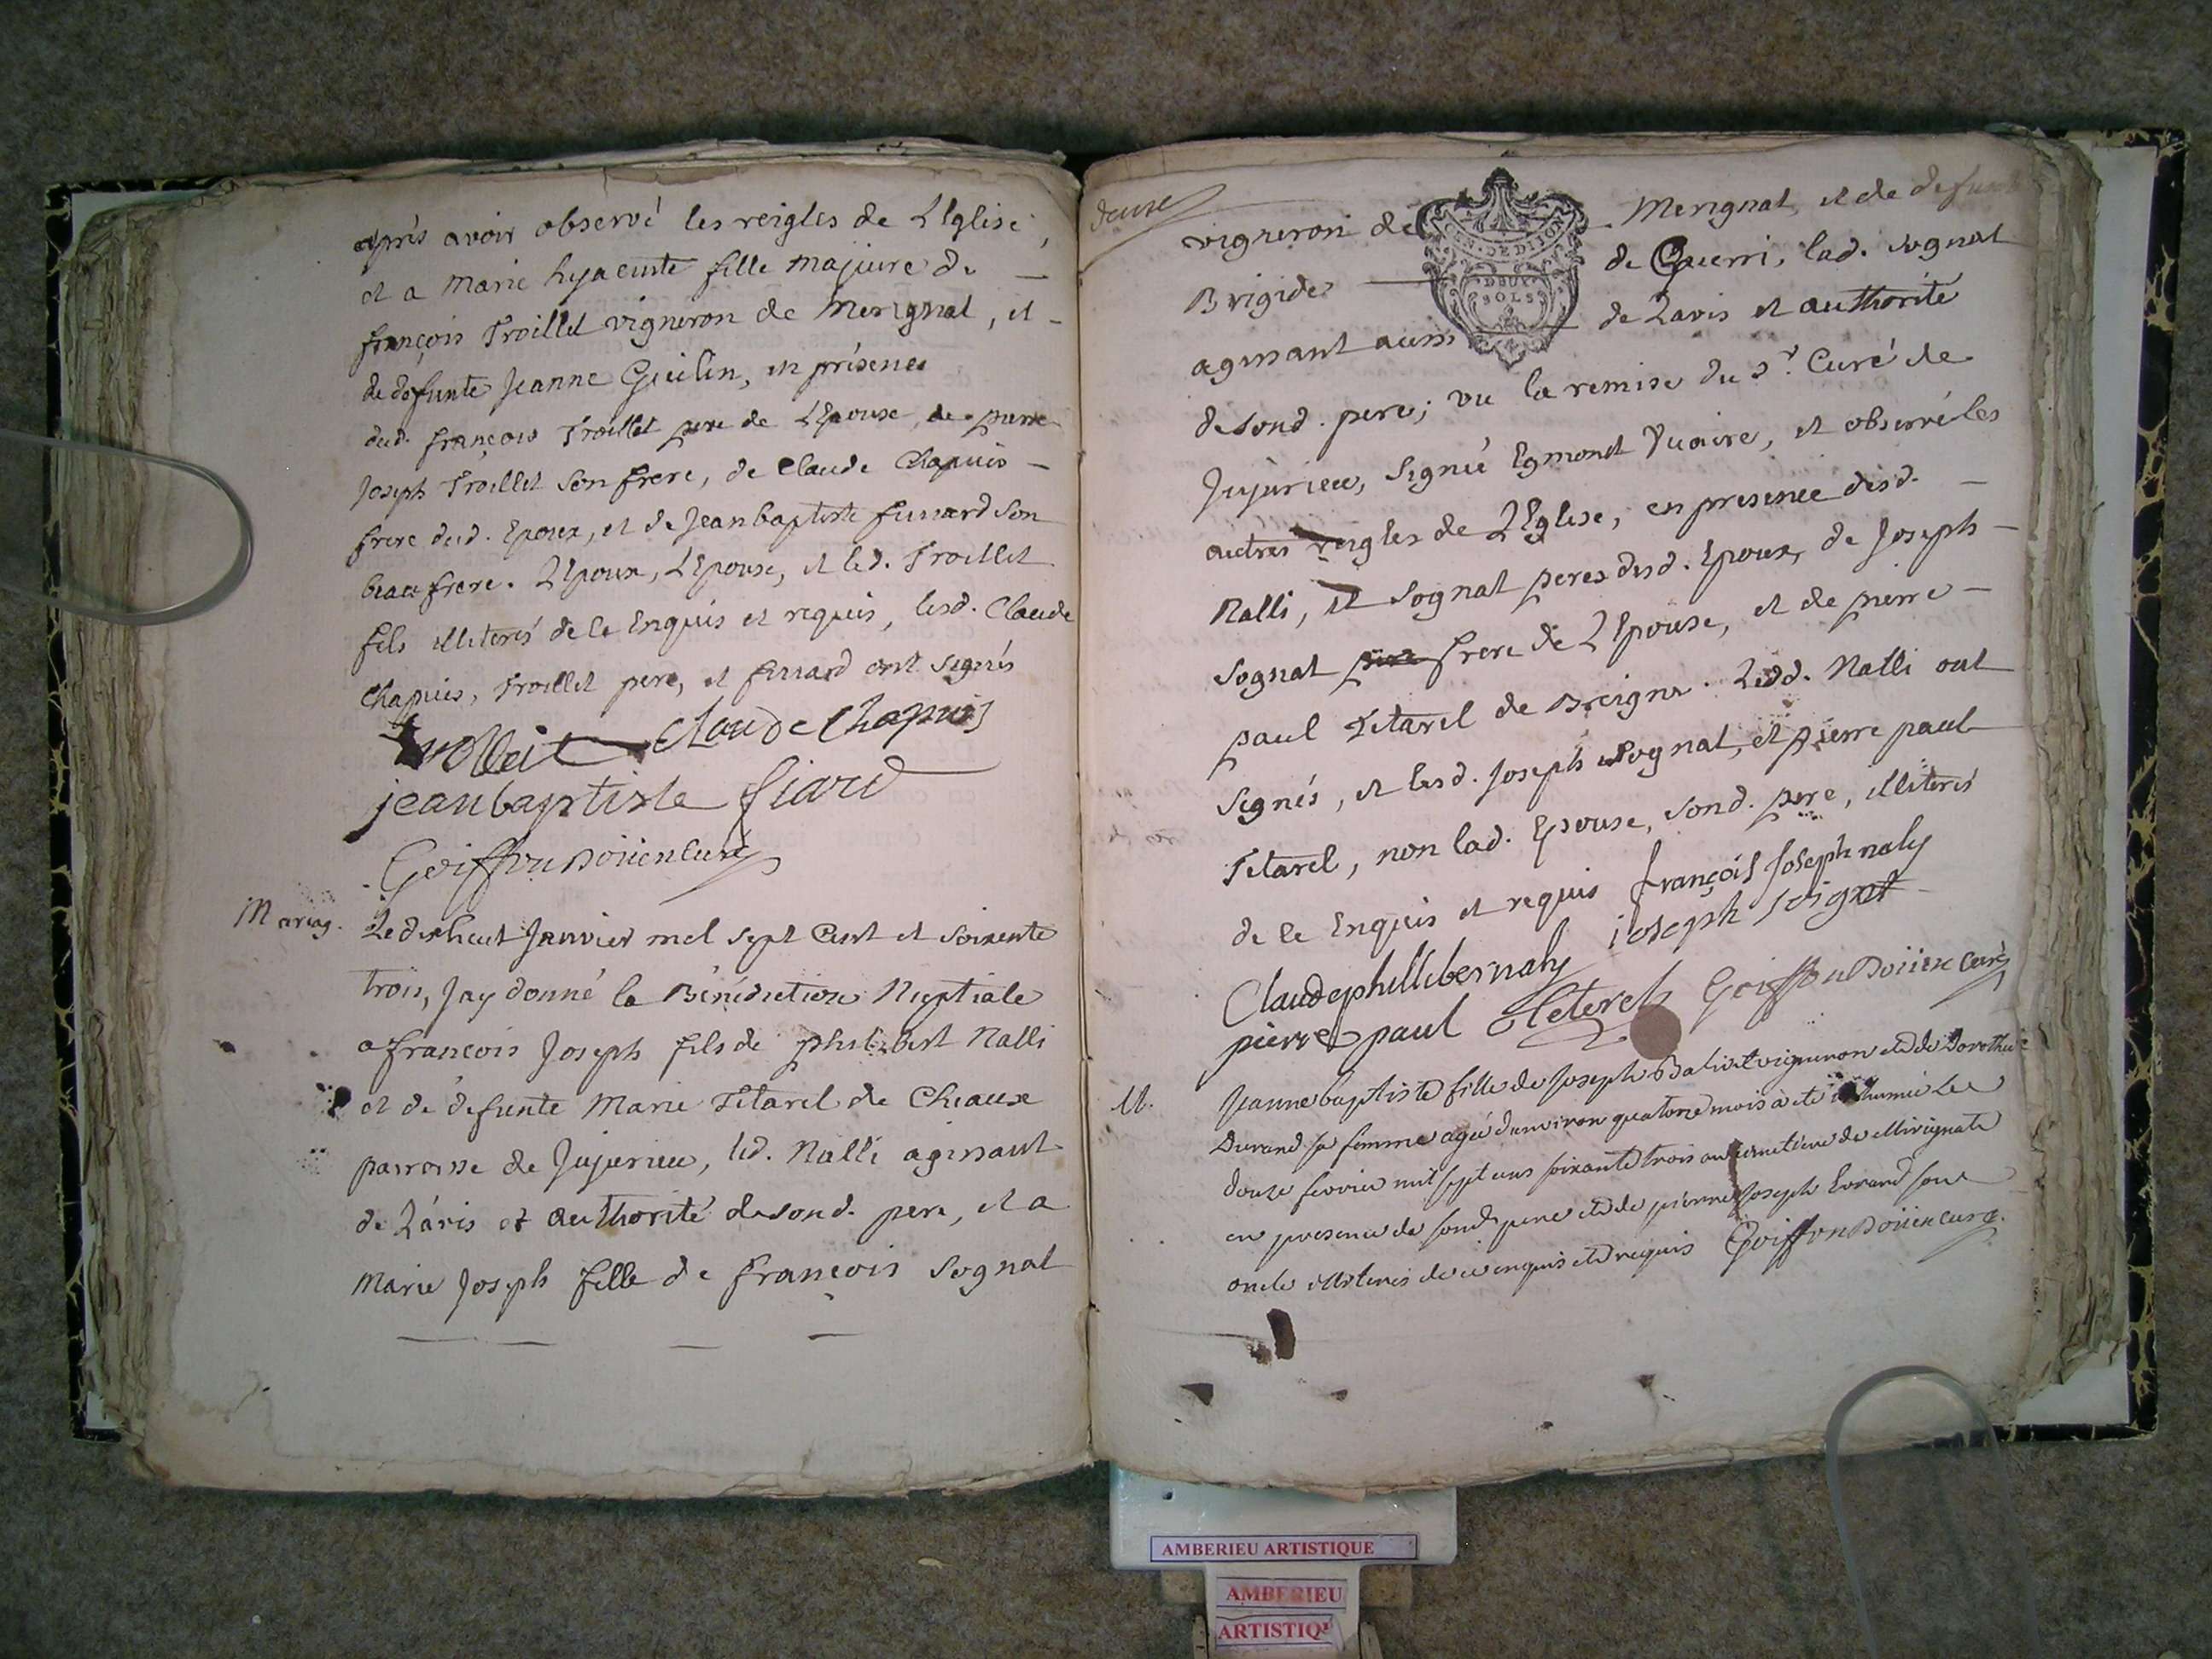 après avoir observé les reigles de L'Eglise,
et a Marie hyacinte fille majeure de
françois Troillet vigneron de Merignat, et
de defunte Jeanne Guilin, en présence
dud. françois Troillet pere de L'Epouse, de pierre
Joseph Troillet son frere, de Claude Chapuis
frere dud. Epoux, et de Jean baptiste
son
beaufrere. L'Epoux, L'Epouse, et led. Troillet
fils illiterés de ce Enquis et requis, lesd. Claude
Chapuis, Troillet pere, et ont signés
Claude Chapuis
jean baptiste fiard
Goiffon Doüen curé
Mariag.
Le dixhuit Janvier mil sept Cent et soixente
trois, Jay donné la Bénédiction Nuptiale
a francois Joseph fils de philibert Nalli
et de defunte Marie Tétarel de Chaux
parroisse de Jujurieu, led. Nalli agissant
de L'avis et authorité de sond. pere, et a
Marie Joseph fille de françois Sognat
douze
vigneron de Merignat, et de defunte
GEN. DE DIJON
DEUX
SOLS
Brigide de Guerri, lad. Sognat
agissant aussi de L'avis et authorité
de sond. pere; vu la remise du Sr. Curé de
Jujurieu, Signé Egmont Vicaire, et observé les
autres reigles de L'Eglise, en presence desd.
Nalli, et Sognat peres desd. Epoux, de Joseph
Sognat frere de L'Epouse, et de pierre
paul Tetarel de Breigne. Lesd. Nalli ont
signés, et lesd. Joseph Sognat, et pierre paul
Tetarel, non lad. Epouse, sond. pere, illiterés
de ce Enquis et requis françois Joseph naly
Claude phillibernaly joseph soignat
pierre paul teterel Goiffon Doüen curé
M.
Jeanne baptiste fille de Joseph Balivet vigneron et de Dorothée
Durand sa femme agée d'environ quatorze mois a été inhumée le
douze fevrier mil sept cens soixante trois au cimetiere de Merignat
en presence de sond. pere et de pierre Joseph Evrard son
oncle illiterés de ce enquis et requis Goiffon Doüen curé.
AMBERIEU ARTISTIQUE
AMBERIEU
ARTISTIQU